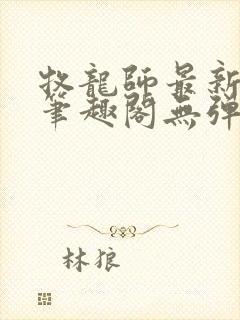 牧龍師最新
筆趣閣無彈
林狼